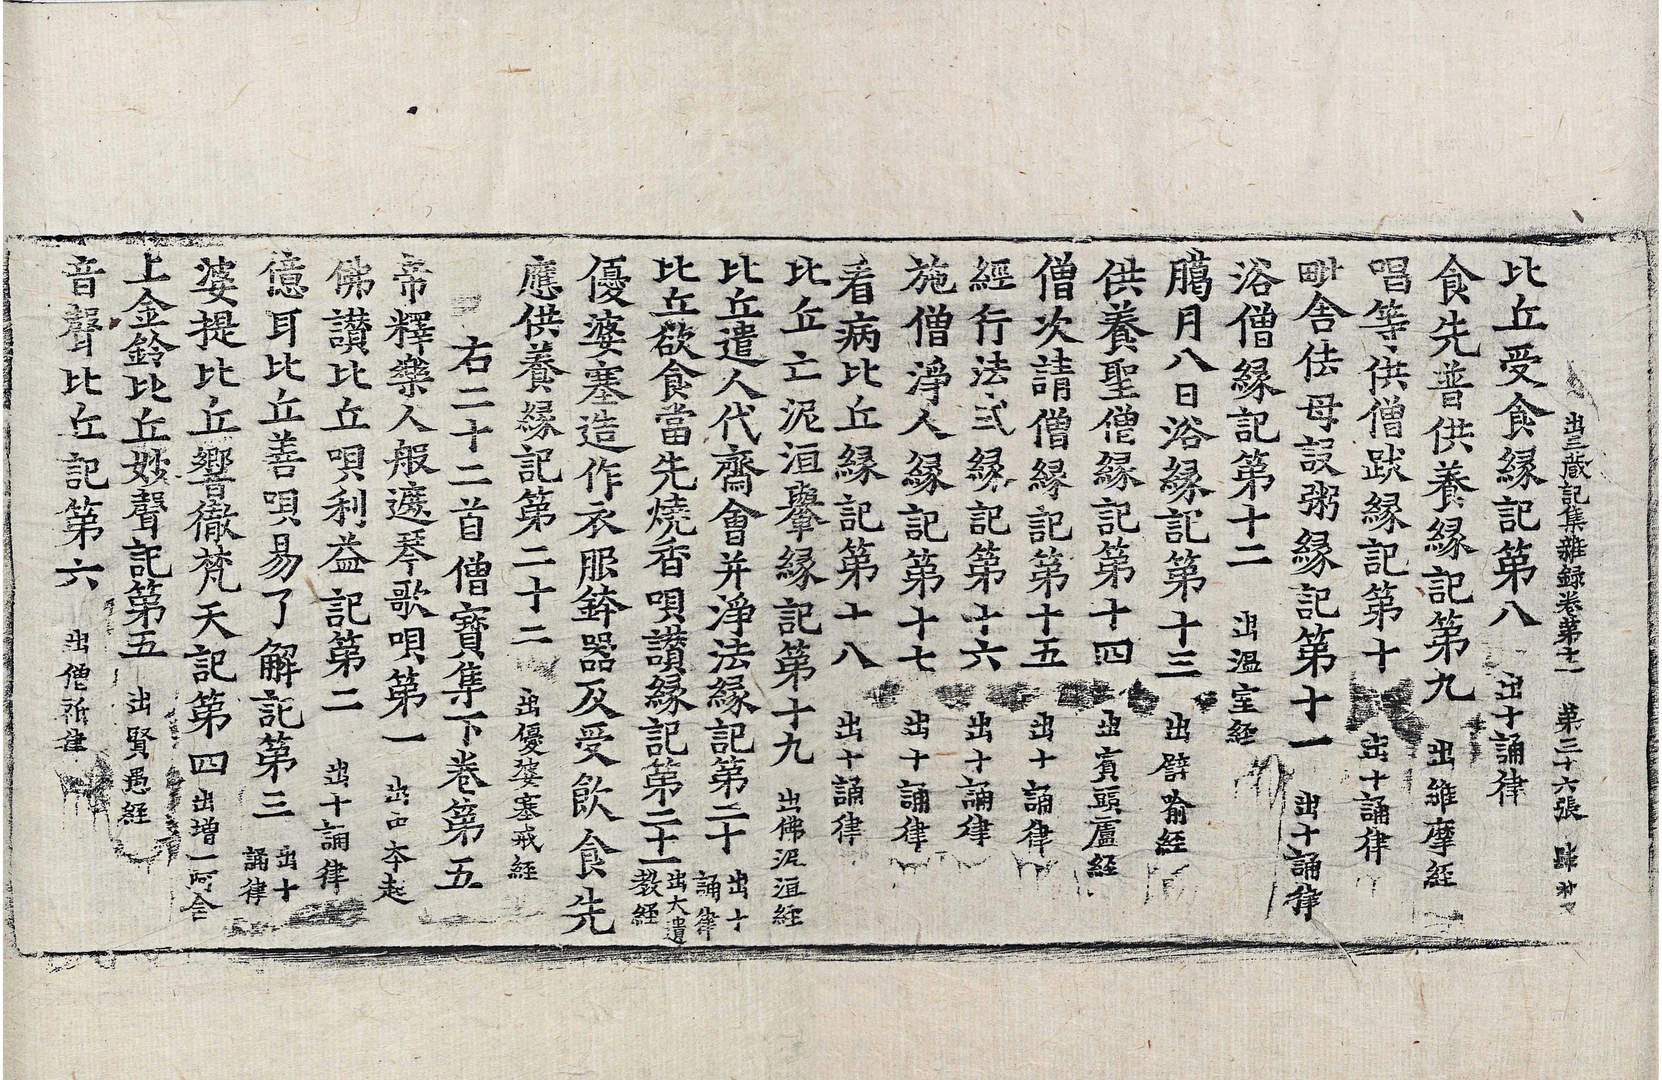 出三藏記集雜録卷第十二 第三十六張
比丘受食縁記第八 出十誦律
食先普供養縁記第九 出維摩經
唱等供僧跋縁記第十 出十誦律
毗舍佉母設粥縁記第十一 出十誦律
浴僧縁記第十二 出温室經
臈月八日浴縁記第十三 出譬喻經
供養聖僧縁記第十四 出賓頭盧經
僧次請僧縁記第十五 出十誦律
經行法式縁記第十六 出十誦律
施僧淨人縁記第十七 出十誦律
看病比丘縁記第十八 出十誦律
比丘亡泥洹輿縁記第十九 出佛泥洹經
比丘遣人代齋會并淨法縁記第二十 出十誦律
比丘欲食當先燒香唄讃縁記第二十一 出大遺教經
優婆塞造作衣服鉢器及受飲食先
應供養縁記第二十二 出優婆塞戒經
右二十二首僧寶集下卷第五
帝釋樂人般遮琴歌唄第一 出中本起
佛讃比丘唄利益記第二 出十誦律
億耳比丘善唄易了解記第三 出十誦律
婆提比丘響徹梵天記第四 出增一阿含
上金鈴比丘妙聲記第五 出賢愚經
音聲比丘記第六 出僧祇律